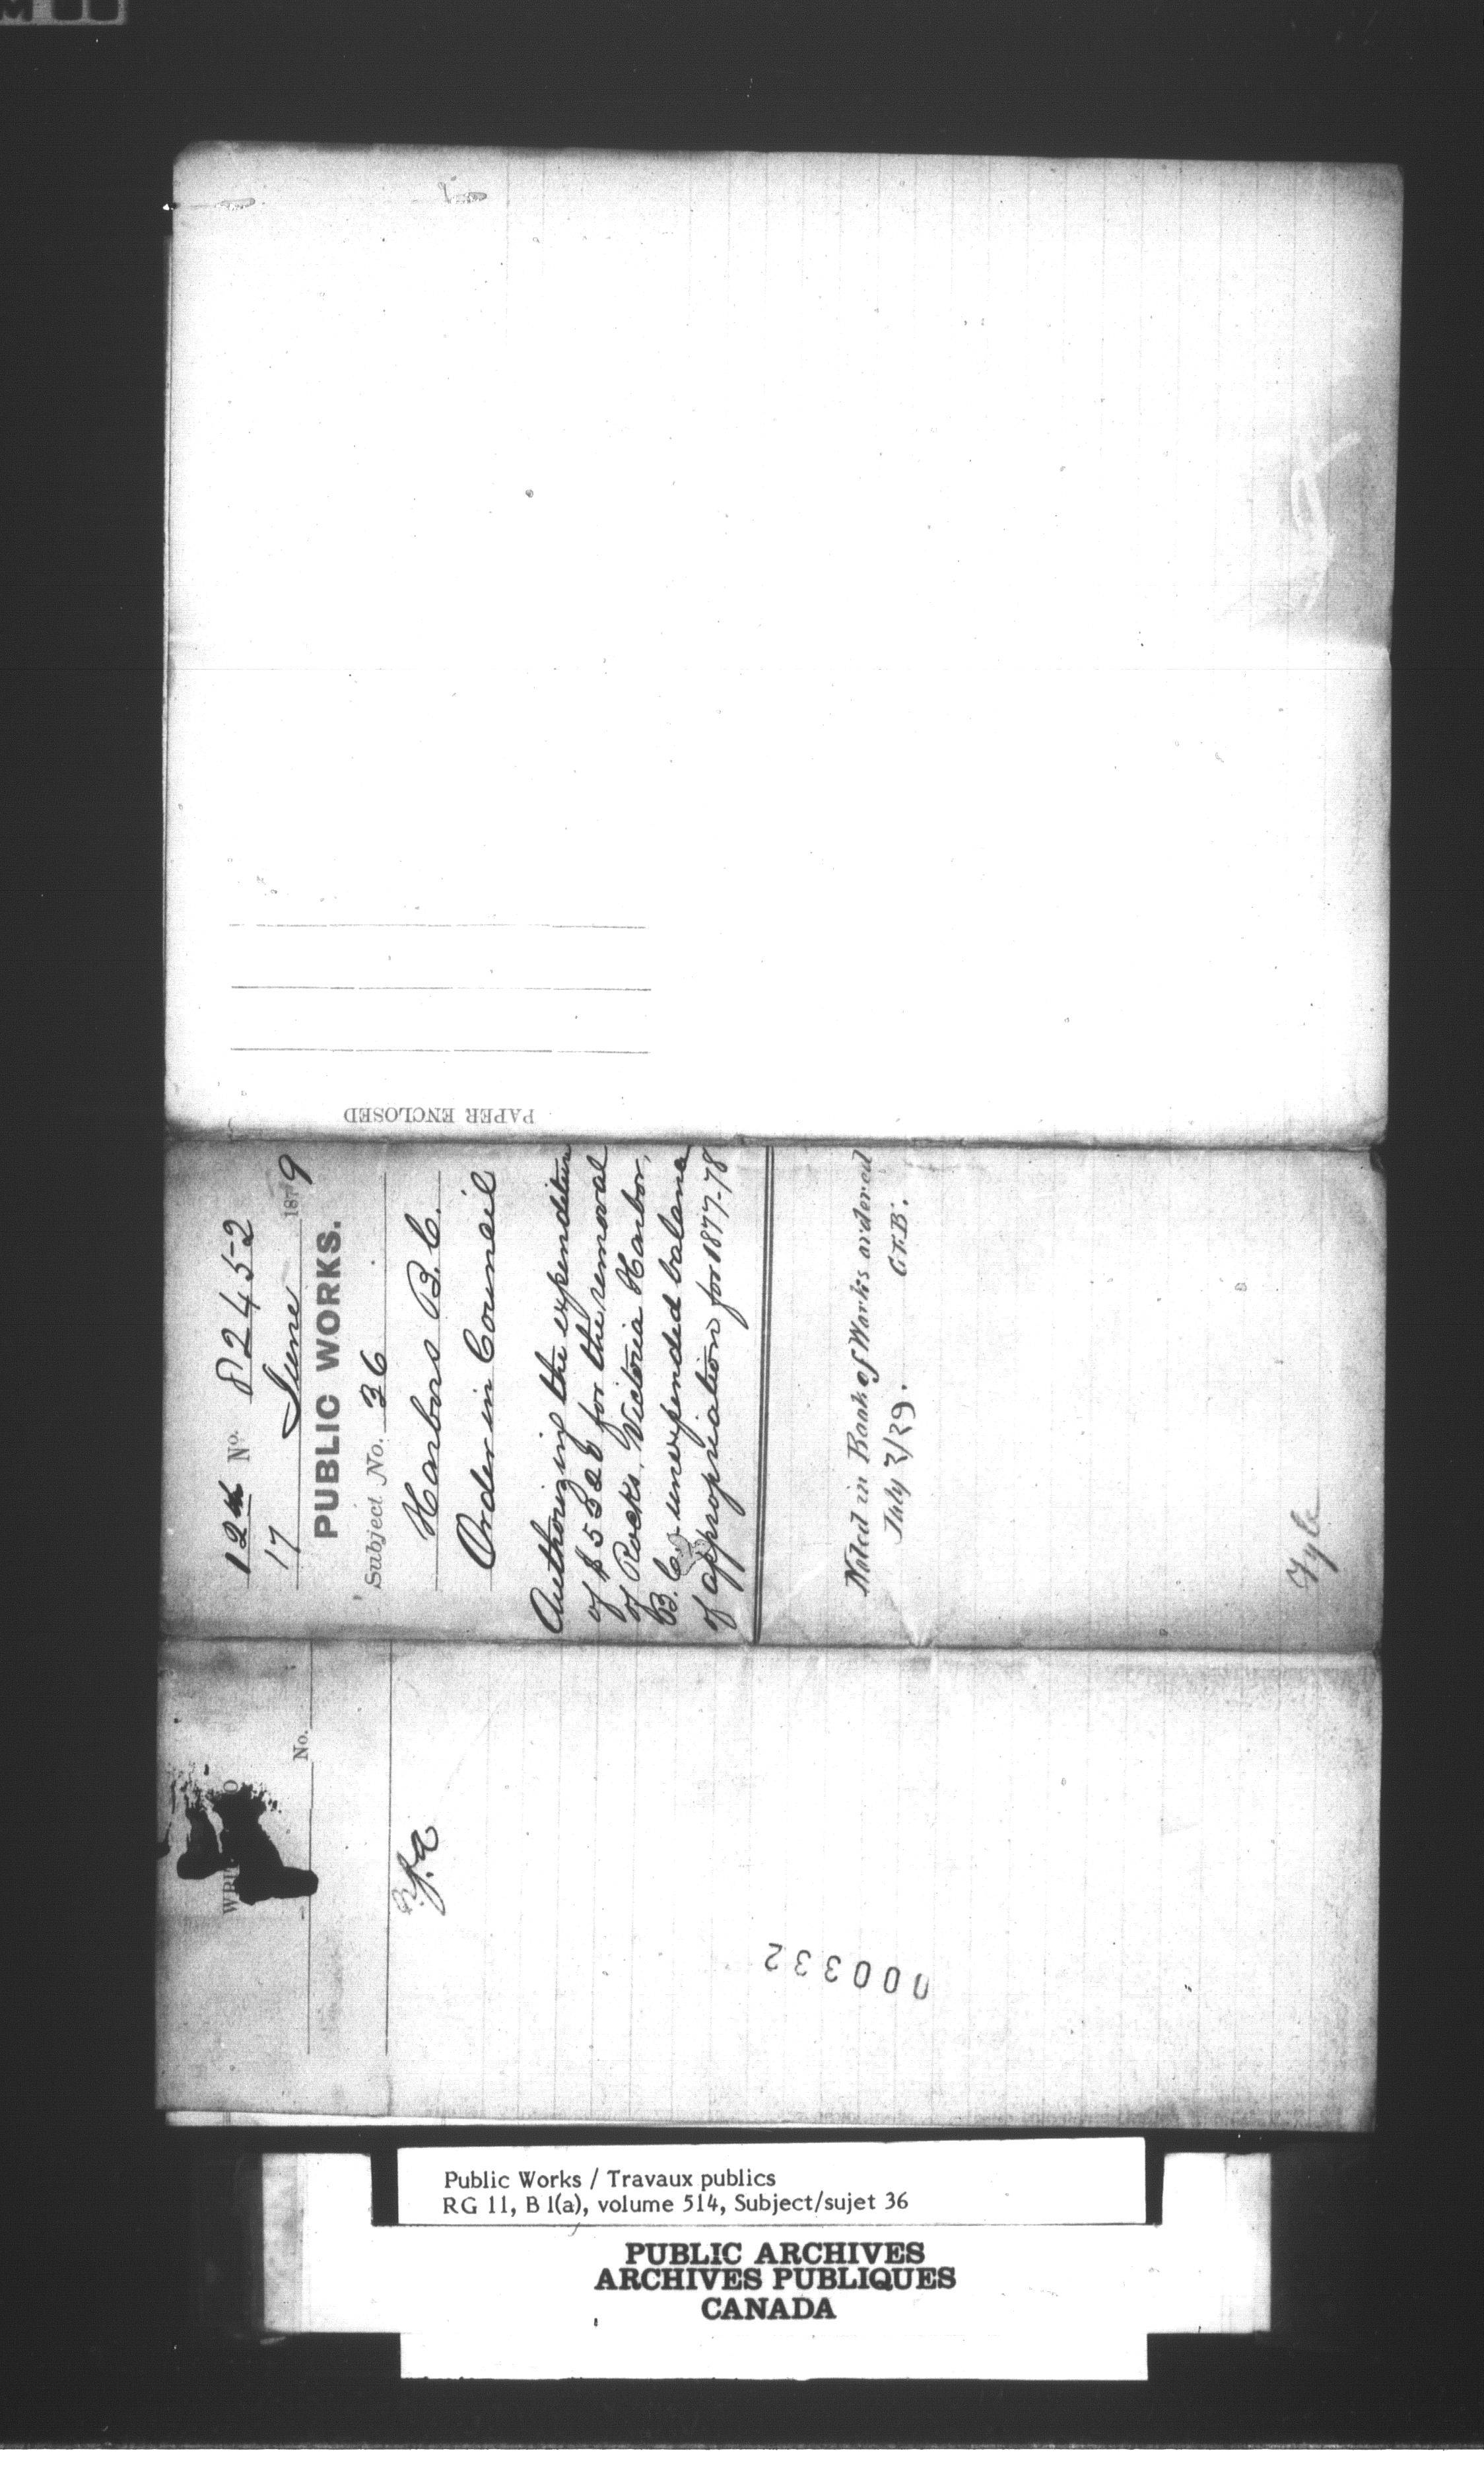 PAPER ENCLOSED
12th No. 82452
17 June 1879
PUBLIC WORKS.
Subject No. 36
Harbors B.C.
Order in Council
Authorizing the expenditure
of $ for the removal
of Rocks, Victoria Harbor,
B.C. unexpended balance
of appropriation for 1877-78
Noted in Book of Works ordered
July /79. G.T.B.
Fyle
No.
000332
Public Works / Travaux publics
RG 11, B 1(a), volume 514, Subject/sujet 36
PUBLIC ARCHIVES
ARCHIVES PUBLIQUES
CANADA